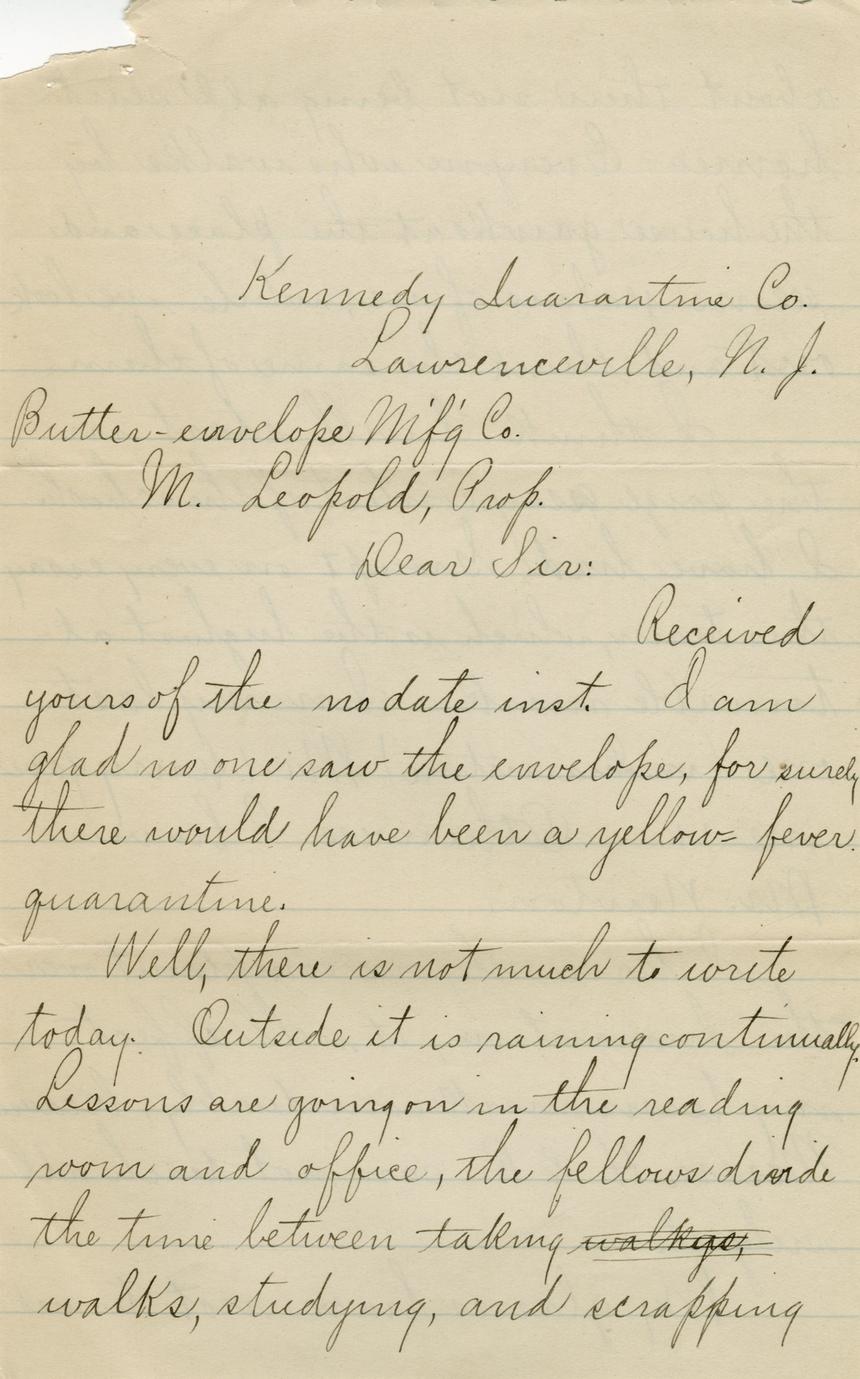 Kennedy Quarantine Co.
Lawrenceville, N. J.
Butter-envelope M'f'g Co.
M. Leopold, Prop.
Dear Sir:
Received
yours of the no date inst. I am
glad no one saw the envelope, for surely
there would have been a yellow= fever
quarantine.
Well, there is not much to write
today. Outside it is raining continually.
Lessons are going on in the reading
room and office, the fellows divide
the time between taking
walks, studying, and scrapping